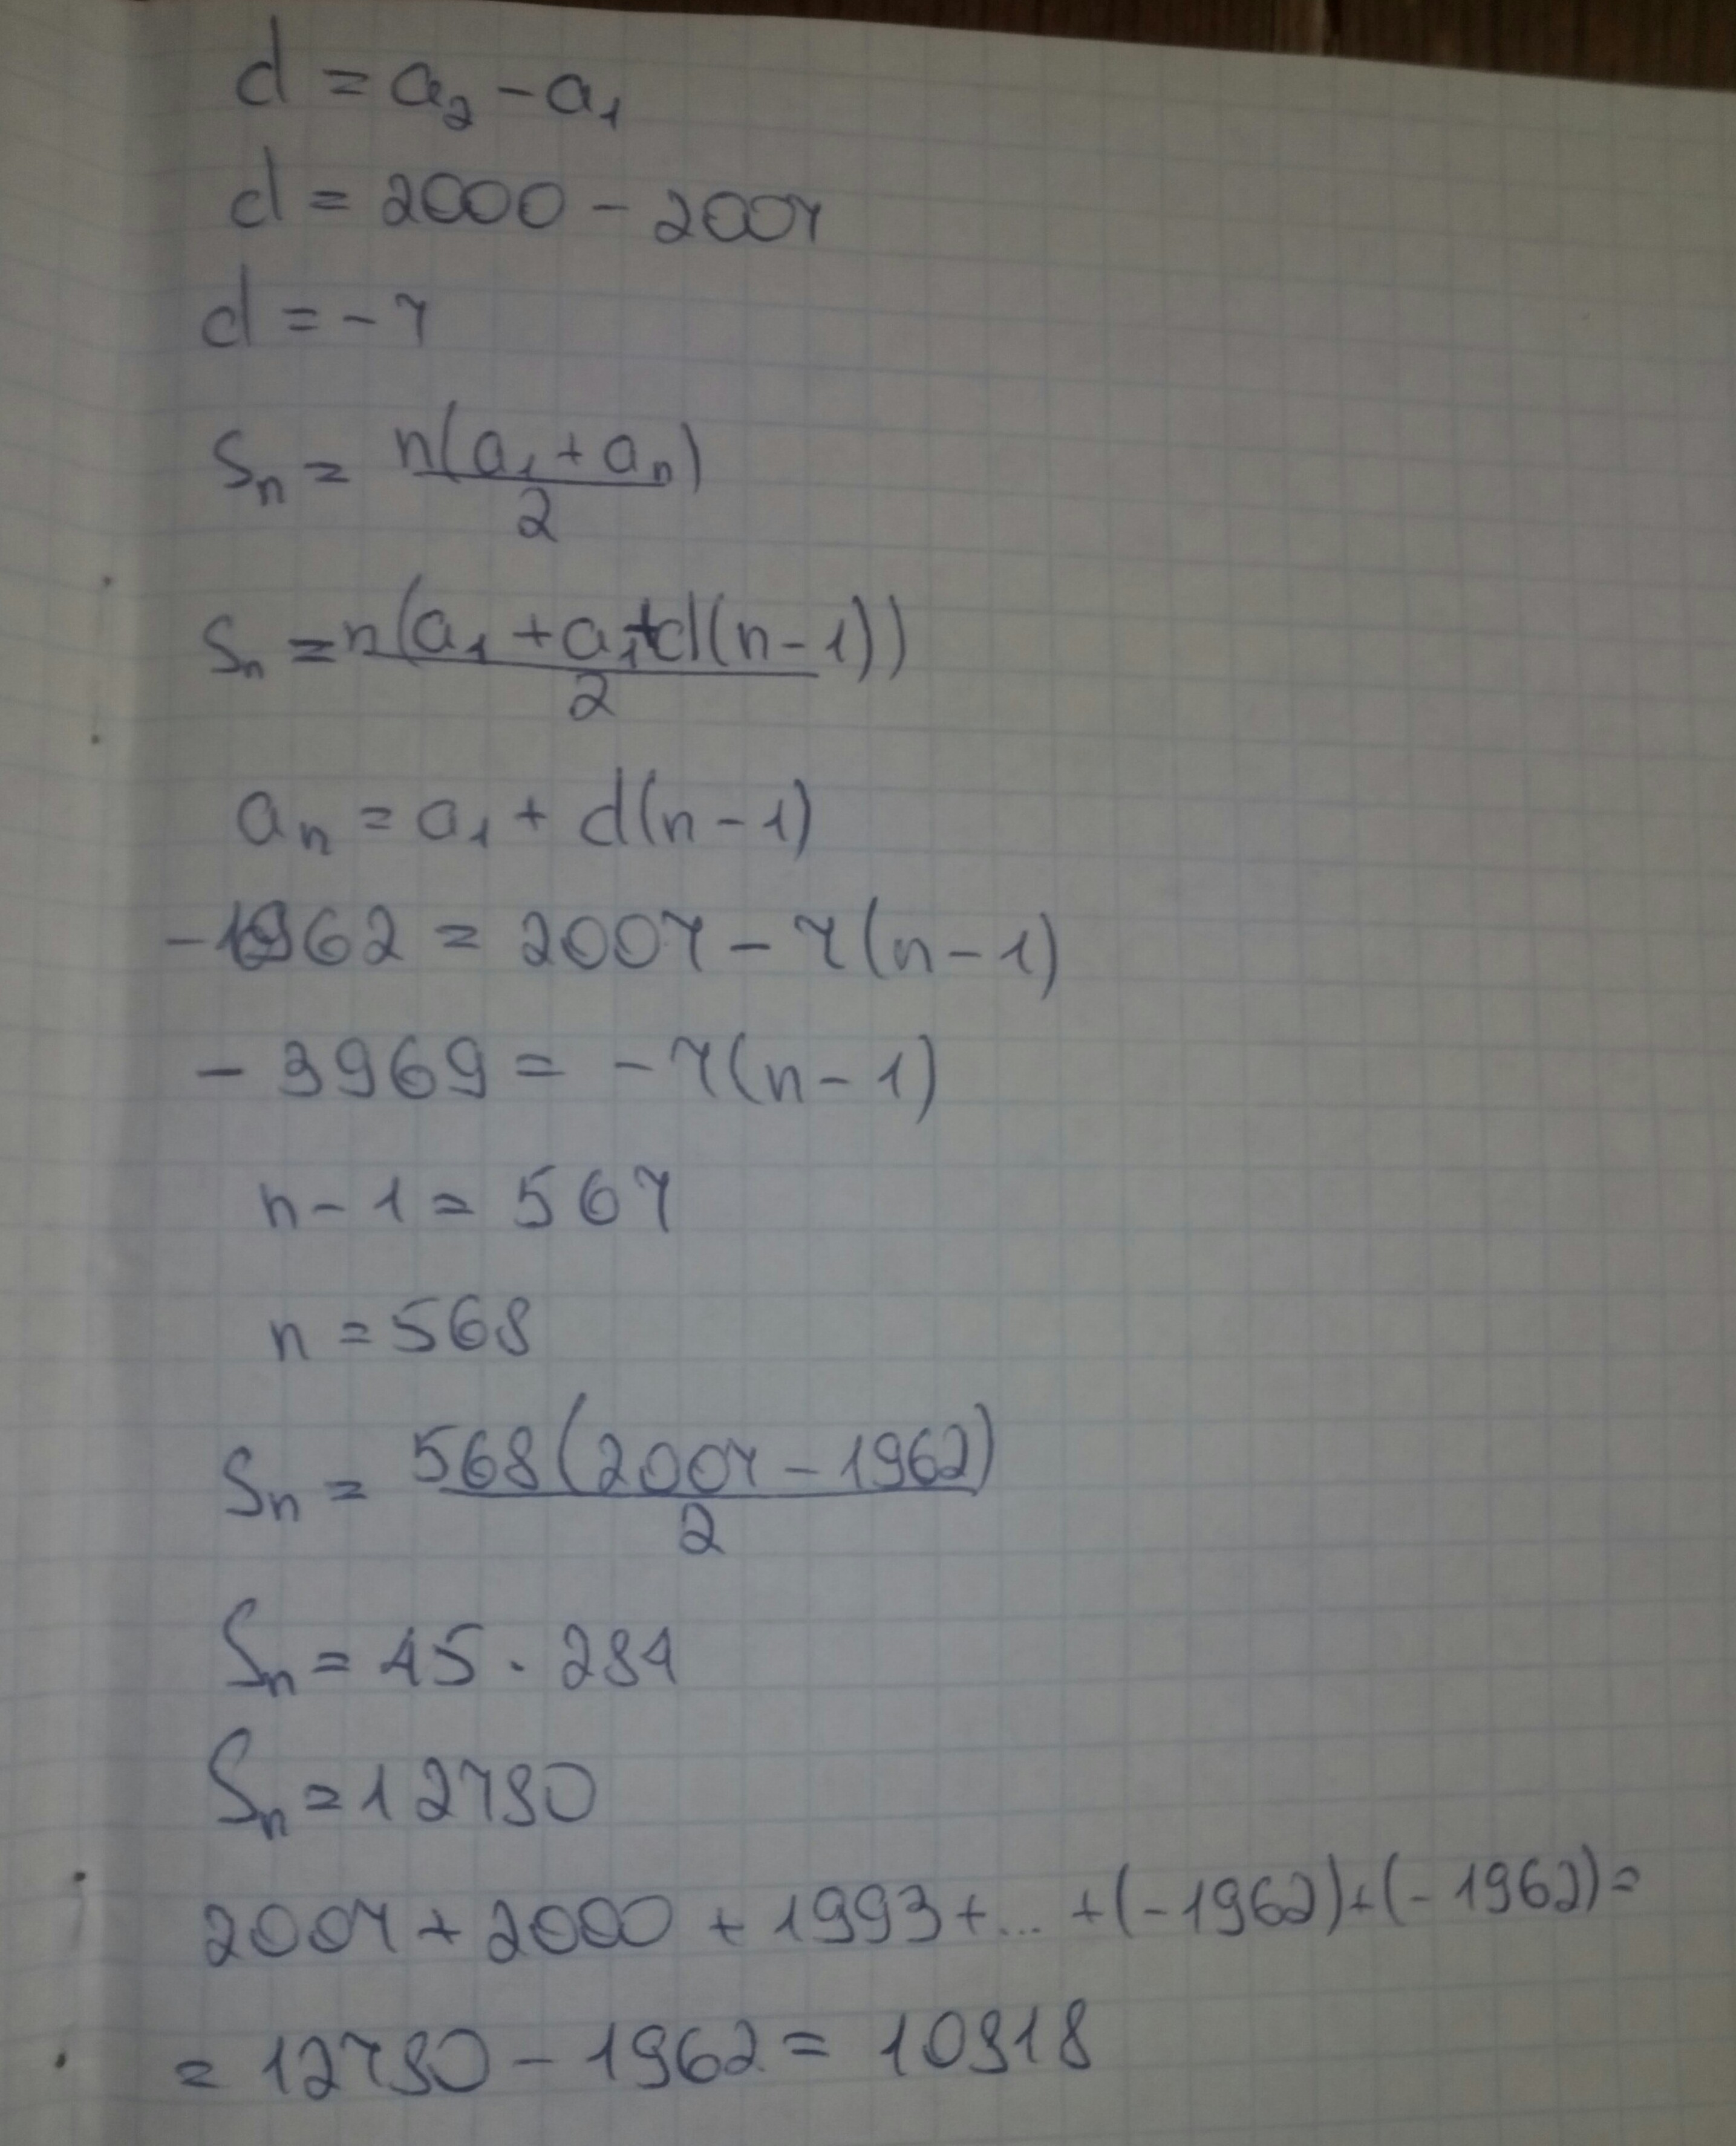 d = a₂ - a₁
d = 2000 - 2007
d = -7
Sₙ = n(a₁ + aₙ)/2
Sₙ = n(a₁ + a₁+d(n-1))/2
aₙ = a₁ + d(n-1)
-1962 = 2007 - 7(n-1)
-3969 = -7(n-1)
n-1 = 567
n = 568
Sₙ = 568(2007 - 1962)/2
Sₙ = 45 · 284
Sₙ = 12780
2007 + 2000 + 1993 + ... + (-1962) + (-1962) =
= 12780 - 1962 = 10818